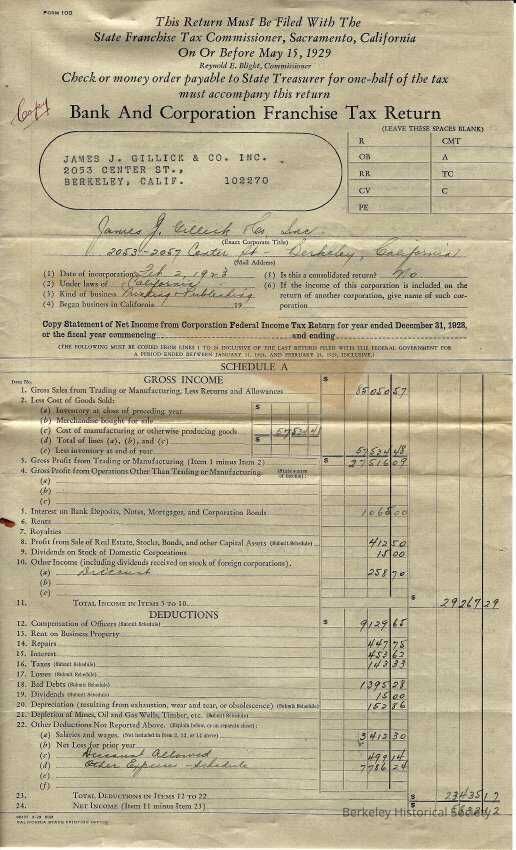 FORM 100
This Return Must Be Filed With The
State Franchise Tax Commissioner, Sacramento, California
On Or Before May 15, 1929
Reynold E. Blight, Commissioner
Check or money order payable to State Treasurer for one-half of the tax
must accompany this return
Copy
Bank And Corporation Franchise Tax Return
(LEAVE THESE SPACES BLANK)
JAMES J. GILLICK & CO. INC.
2053 CENTER ST.,
BERKELEY, CALIF. 102270
R CMT
OB A
RR TC
CV C
PE
James J. Gillick Co. Inc.
(Exact Corporate Title)
2053-2057 Center St Berkeley, California
(Mail Address)
(1) Date of incorporation Feb 2, 1923
(2) Under laws of California
(3) Kind of business Printing & Publishing
(4) Began business in California 19
(5) Is this a consolidated return? No
(6) If the income of this corporation is included on the
return of another corporation, give name of such cor-
poration
Copy Statement of Net Income from Corporation Federal Income Tax Return for year ended December 31, 1928,
or the fiscal year commencing and ending
(THE FOLLOWING MUST BE COPIED FROM LINES 1 TO 24 INCLUSIVE OF THE LAST RETURN FILED WITH THE FEDERAL GOVERNMENT FOR
A PERIOD ENDED BETWEEN JANUARY 31, 1928, AND FEBRUARY 28, 1929, INCLUSIVE.)
SCHEDULE A
Item No. GROSS INCOME
1. Gross Sales from Trading or Manufacturing, Less Returns and Allowances $ 85050 57
2. Less Cost of Goods Sold:
(a) Inventory at close of preceding year $
(b) Merchandise bought for sale
(c) Cost of manufacturing or otherwise producing goods 57534 48
(d) Total of lines (a), (b), and (c) $
(e) Less inventory at end of year 57534 48
3. Gross Profit from Trading or Manufacturing (Item 1 minus Item 2) $ 27516 09
4. Gross Profit from Operations Other Than Trading or Manufacturing. (State source of income):
(a)
(b)
(c)
5. Interest on Bank Deposits, Notes, Mortgages, and Corporation Bonds 1065 00
6. Rents
7. Royalties
8. Profit from Sale of Real Estate, Stocks, Bonds, and other Capital Assets (Submit Schedule) 412 50
9. Dividends on Stock of Domestic Corporations 15 00
10. Other Income (including dividends received on stock of foreign corporations).
(a) Discount 258 70
(b)
(c)
11. TOTAL INCOME IN ITEMS 3 TO 10 $ 29267 29
DEDUCTIONS
12. Compensation of Officers (Submit Schedule) $ 9129 65
13. Rent on Business Property
14. Repairs 447 75
15. Interest 453 62
16. Taxes (Submit Schedule) 143 33
17. Losses (Submit Schedule)
18. Bad Debts (Submit Schedule) 1395 28
19. Dividends (Submit Schedule) 15 00
20. Depreciation (resulting from exhaustion, wear and tear, or obsolescence) (Submit Schedule) 152 86
21. Depletion of Mines, Oil and Gas Wells, Timber, etc. (Submit Schedule)
22. Other Deductions Not Reported Above. (Explain below, or on separate sheet):
(a) Salaries and wages. (Not included in Item 2, 12, or 14 above) 3412 30
(b) Net Loss for prior year
(c) Discount Allowed 499 14
(d) Other Expenses - Schedule 7786 24
(e)
(f)
23. TOTAL DEDUCTIONS IN ITEMS 12 TO 22 $ 23435 17
24. NET INCOME (Item 11 minus Item 23) $
Berkeley Historical Society
CALIFORNIA STATE PRINTING OFFICE